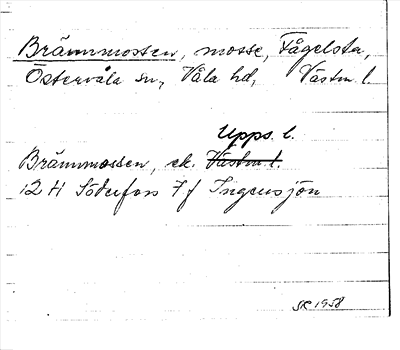 Brännmossen, mosse, Fågelsta,
Östervåla sn, Våla hd, Västm. l.
Upps. l.
Brännmossen, ek. Västm l.
12 H Söderfors 7 f Ingensjön
SR 1958